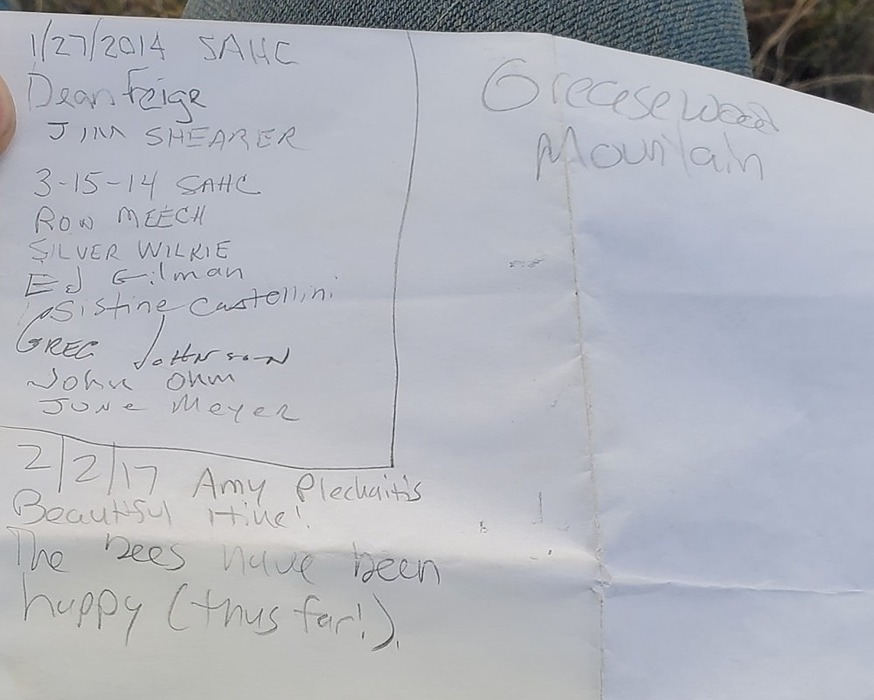 1/27/2014 SAHC
Dean Feige
JIM SHEARER
3-15-14 SAHC
RON MEECH
SILVER WILKIE
Ed Gilman
Sistine Castellini
GREG JOHNSON
John Ohm
June Meyer
2/2/17 Amy Plechaitis
Beautiful Hike!
The bees have been
happy (thus far!).
Greesewood
Mountain